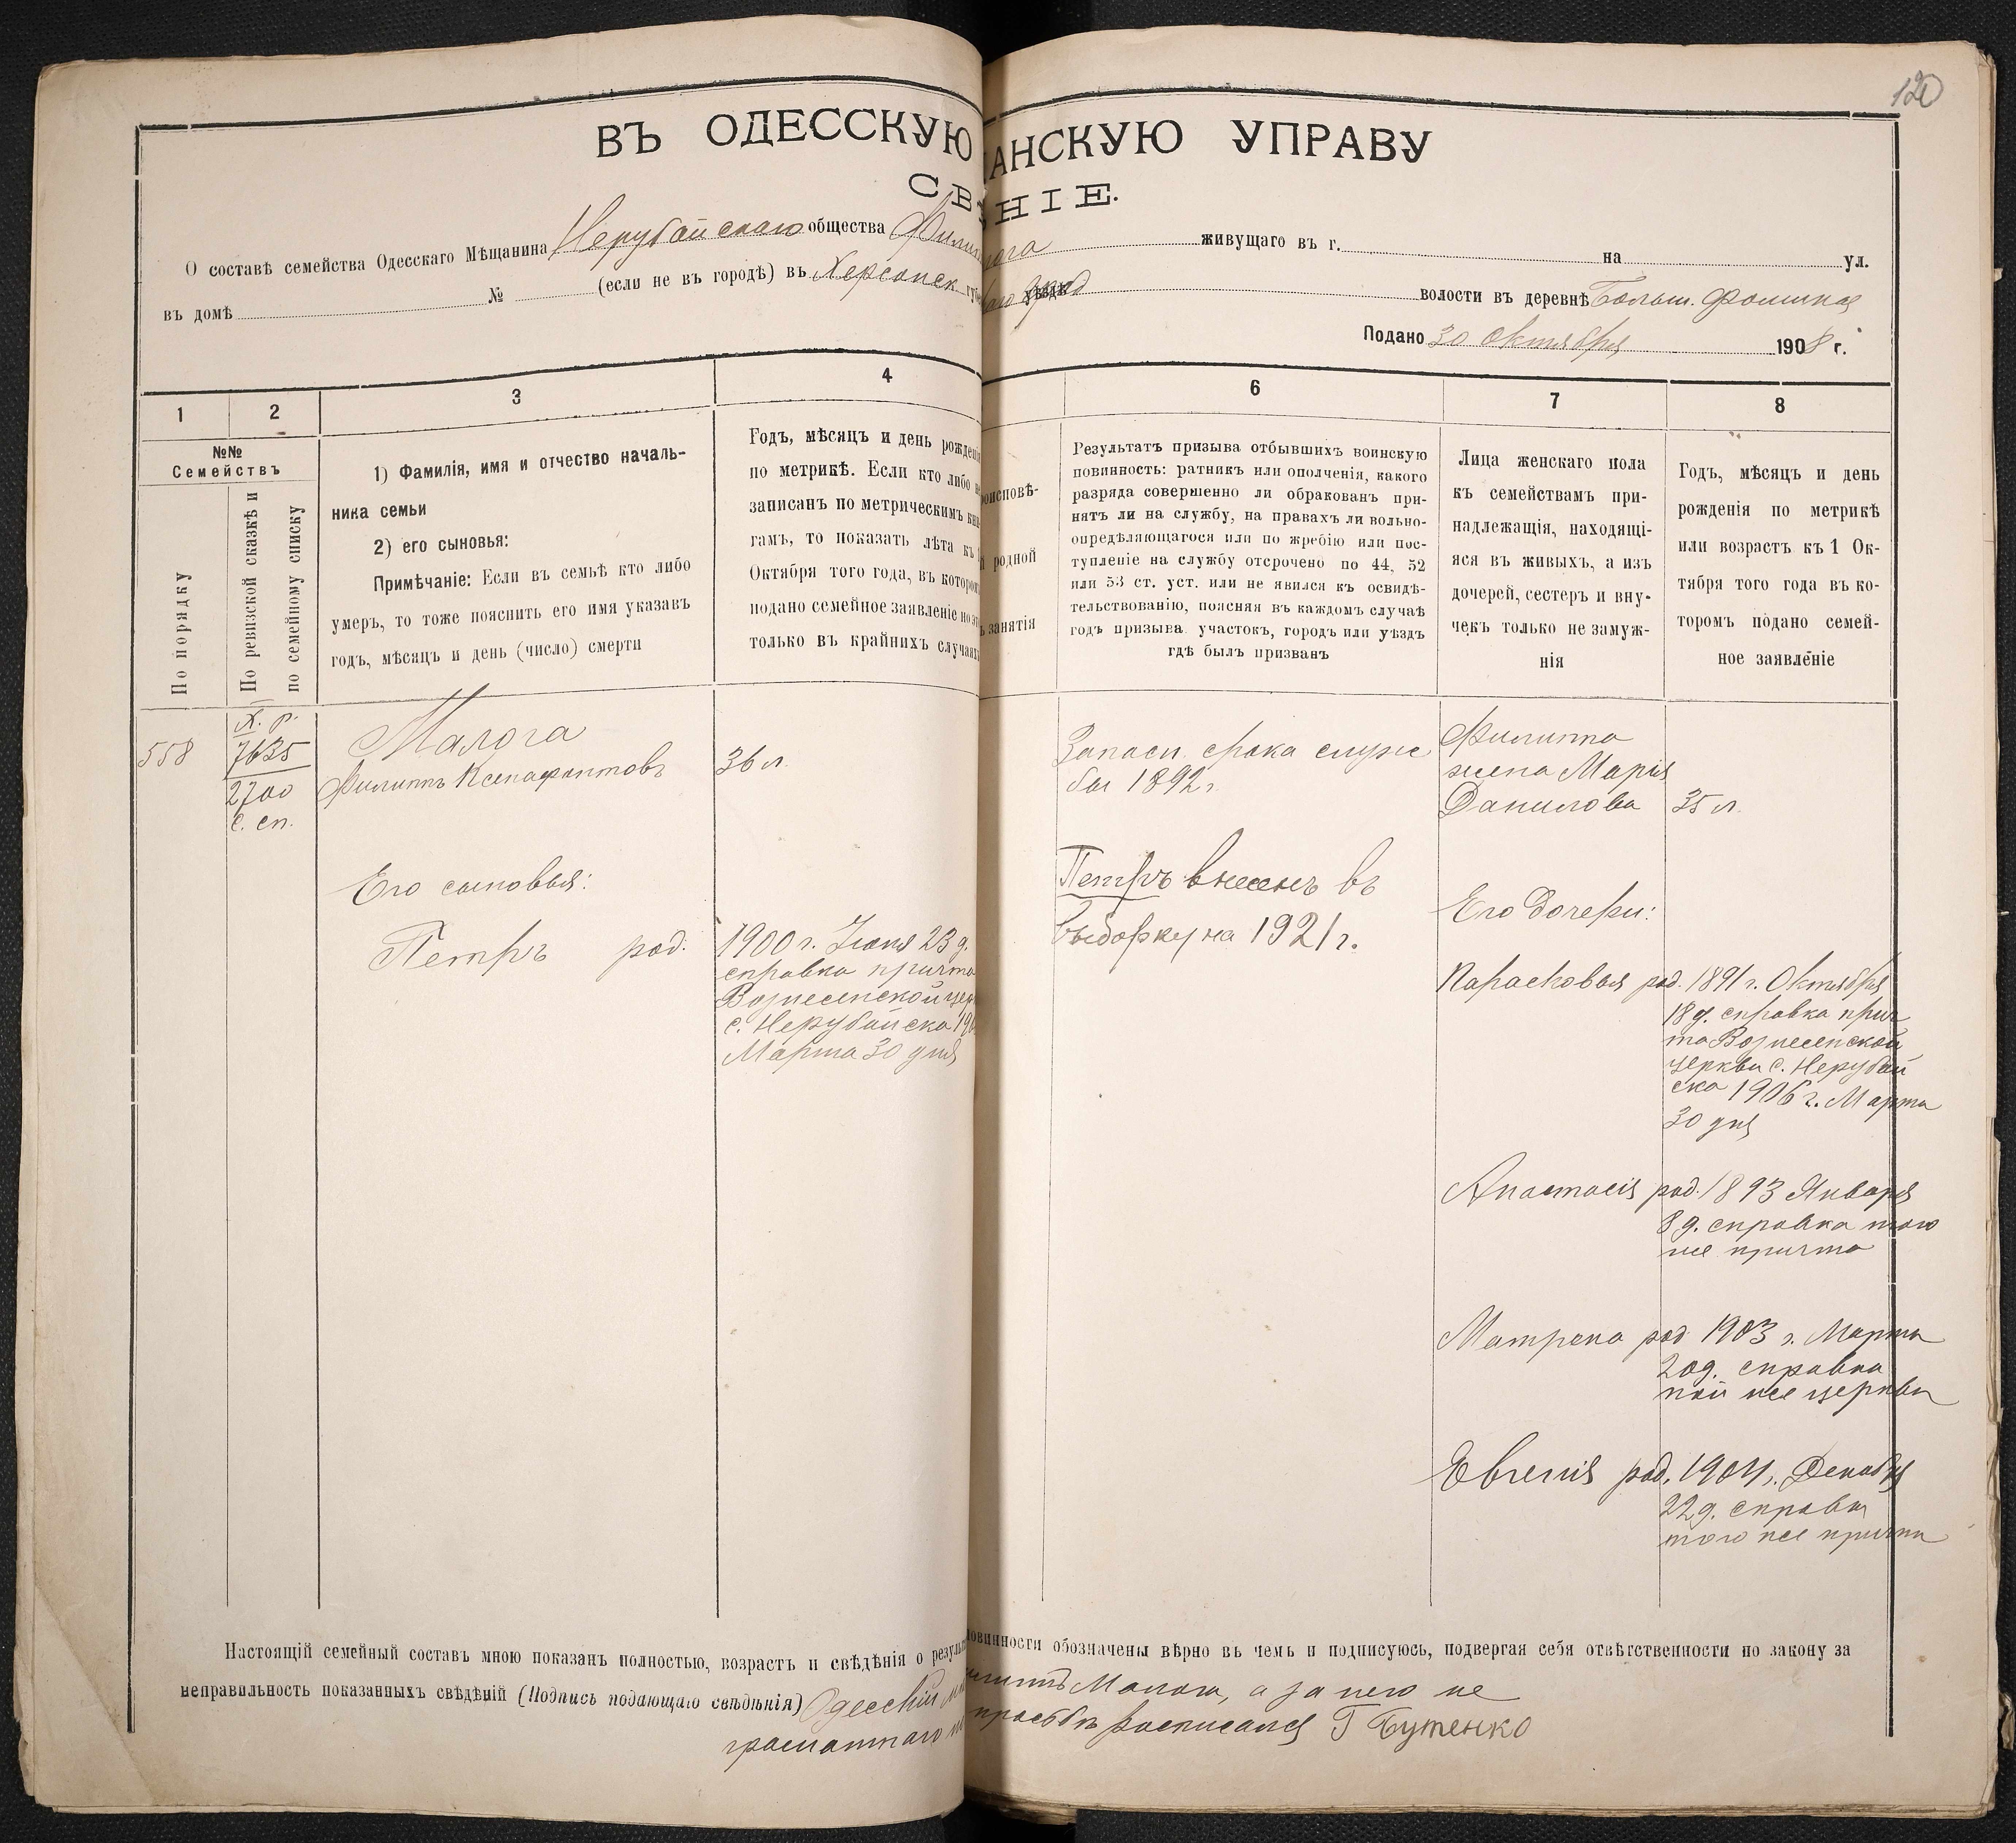 120
ВЪ ОДЕССКУЮ АНСКУЮ УПРАВУ
СВ НІЕ.
О составѣ семейства Одесскаго Мѣщанина Нерубайскаго общества Филип лога живущаго въ г. на ул.
въ домѣ № (если не въ городѣ) въ Херсонск губ уѣзда волости въ деревнѣ Больш. Фомина
Подано 30 Октября 1908 г.
1 2 3 4 6 7 8
№№
Семействъ
По порядку
По ревизской сказкѣ и
по семейному списку
1) Фамилія, имя и отчество началь-
ника семьи
2) его сыновья:
Примѣчаніе: Если въ семьѣ кто либо
умеръ, то тоже пояснить его имя указавъ
годъ, мѣсяцъ и день (число) смерти
Годъ, мѣсяцъ и день рожденія
по метрикѣ. Если кто либо не
записанъ по метрическимъ кни
гамъ, то показать лѣта къ 1
Октября того года, въ которо
подано семейное заявленіе но э
только въ крайнихъ случаях
оисповѣ-
родной
занятія
Результатъ призыва отбывшихъ воинскую
повинность: ратникъ или ополченія, какого
разряда совершенно ли обракованъ при-
нятъ ли на службу, на правахъ ли вольно-
опредѣляющагося или по жребію или пос-
тупленіе на службу отсрочено по 44, 52
или 53 ст. уст. или не явился къ освидѣ-
тельствованію, поясняя въ каждомъ случаѣ
годъ призыва участокъ, городъ или уѣздъ
гдѣ былъ призванъ
Лица женскаго пола
къ семействамъ при-
надлежащія, находящі-
яся въ живыхъ, а изъ
дочерей, сестеръ и вну-
чекъ только не замуж-
нія
Годъ, мѣсяцъ и день
рожденія по метрикѣ
или возрастъ къ 1 Ок-
тября того года въ ко-
торомъ подано семей-
ное заявленіе
558
Х. р.
7635
2700
с. сп.
Малога
Филиппъ Ксенафонтовъ
36 л.
Запасн. срока служ
бы 1892 г.
Филиппа
жена Марія
Данилова 35 л.
Его сыновья:
Петръ род.
1900 г. Іюня 23 д.
справка причта
Вознесенской цер
с. Нерубайска 190
Марта 30 дня
Петръ внесенъ въ
выборку на 1921 г.
Его дочери:
Парасковья род. 1891 г. Октября
18 д. справка прич
та Вознесенской
церкви с. Нерубай
ска 1906 г. Марта
30 дня
Анастасія род. 1893 Января
8 д. справка того
же причта
Матрена род 1903 г. Марта
20 д. справка
той же церкви
Евгенія род. 1904 г. Декабря
22 д. справка
того же причта
Настоящій семейный составъ мною показанъ полностью, возрастъ и свѣдѣнія о резуль повинности обозначены вѣрно въ чемъ и подписуюсь, подвергая себя отвѣтственности по закону за
неправильность показанныхъ свѣдѣній (Подпись подающаго свѣдѣнія) Одесскій мѣ липпъ Малога, а за него не
грамотнаго по просьбѣ росписался Г Бутенко